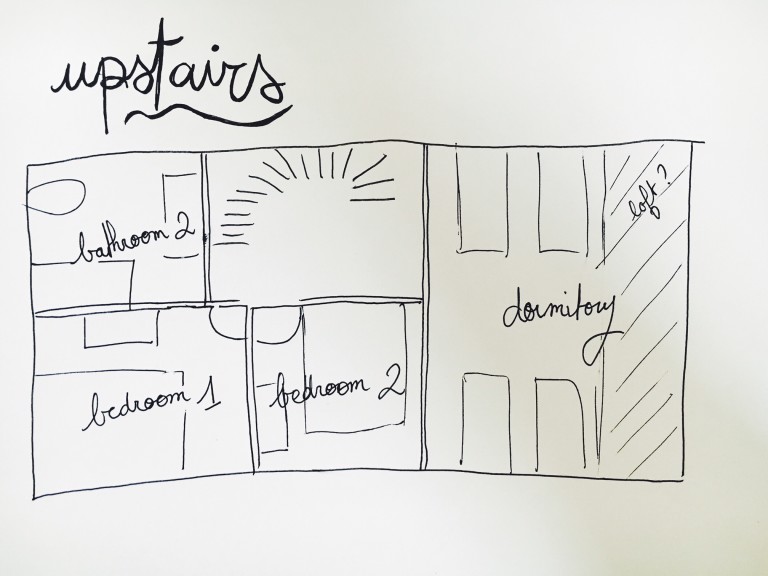 upstairs
bathroom 2
loft?
dormitory
bedroom 1
bedroom 2